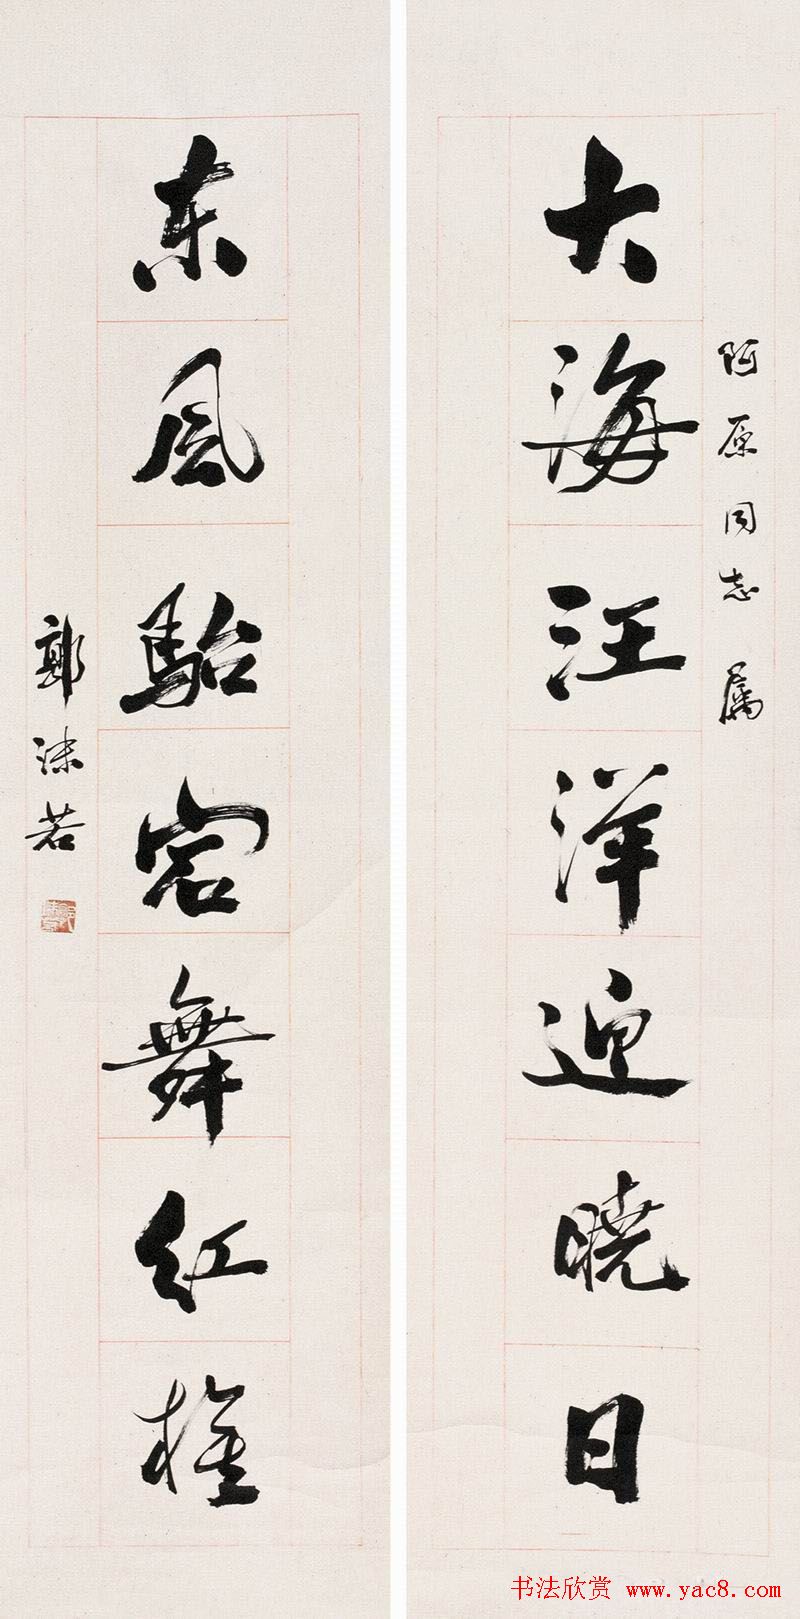 阿原同志 属
大海汪洋迎晓日
东风駘宕舞红旌
郭沫若
书法欣赏 www.yac8.com